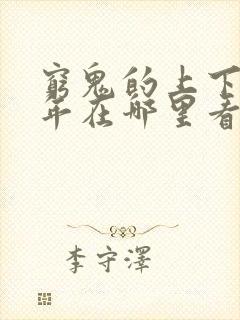 窮鬼的上下
年在哪里看
李守澤